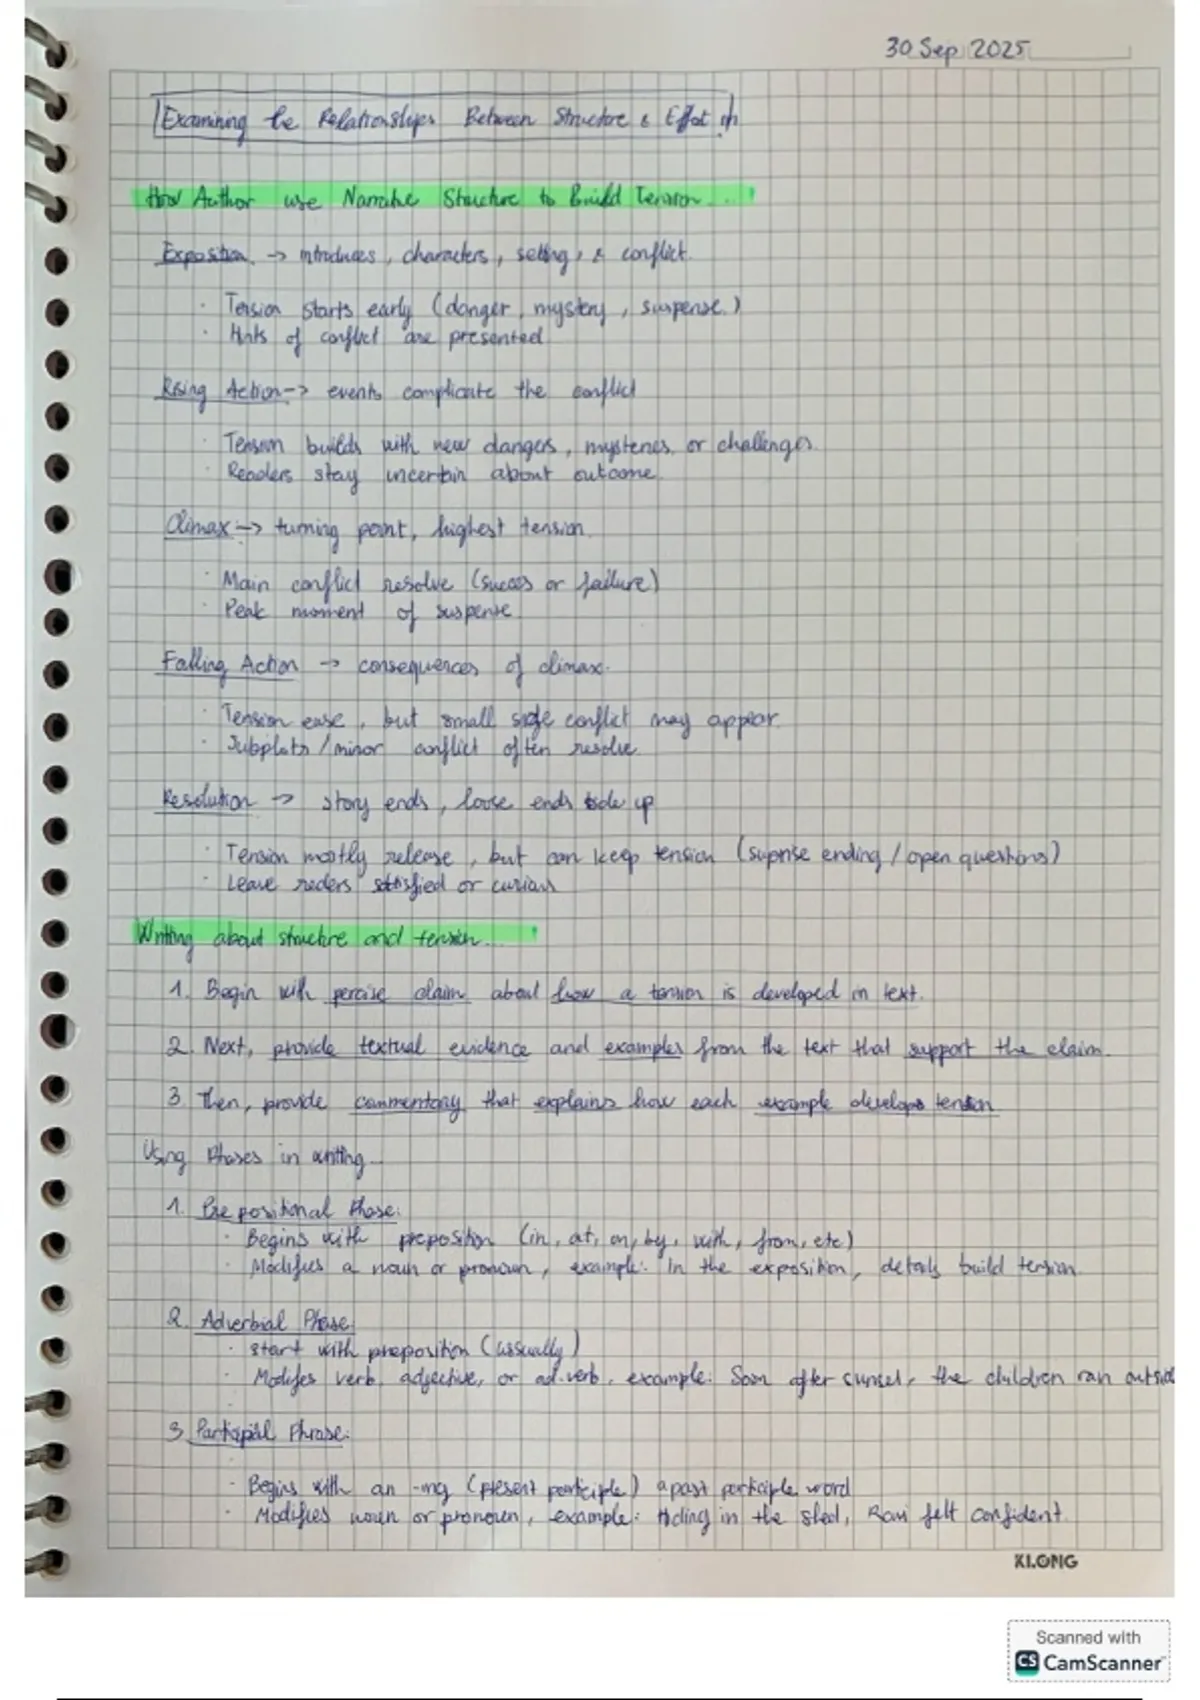 30 Sep 2025
Examining the Relationships Between Structure & Effect in
How Author use Narrative Structure to Build Tension...
Exposition -> introduces, characters, setting, & conflict.
· Tension starts early (danger, mystery, suspense.)
· Hints of conflict are presented
Rising Action -> events complicate the conflict
· Tension builds with new dangers, mysteries, or challenges.
· Readers stay uncertain about outcome.
Climax -> turning point, highest tension.
· Main conflict resolve (success or failure)
· Peak moment of suspense.
Falling Action -> consequences of climax.
· Tension ease, but small side conflict may appear.
· Subplots/minor conflict often resolve
Resolution -> story ends, loose ends up
· Tension mostly release, but can keep tension (suprise ending / open questions)
· Leave reders satisfied or curious
Writing about structure and tension...
1. Begin with percise claim about how a tension is developed in text.
2. Next, provide textual evidence and examples from the text that support the claim.
3. Then, provide commentary that explains how each example develops tension
Using Phases in writing...
1. Prepositional Phase:
· Begins with preposition (in, at, on, by, with, from, etc)
· Modifies a noun or pronoun, example: In the exposition, details build tension.
2. Adverbial Phase
· start with preposition (ussually)
· Modifes verb, adjective, or ad.verb, example: Soon after sunset, the children ran outsid
3. Participial Phrase:
· Begins with an -ing (present participle) a past participle word
· Modifies noun or pronoun, example: Hiding in the shed, Ravi felt confident.
KLONG
Scanned with
CS CamScanner